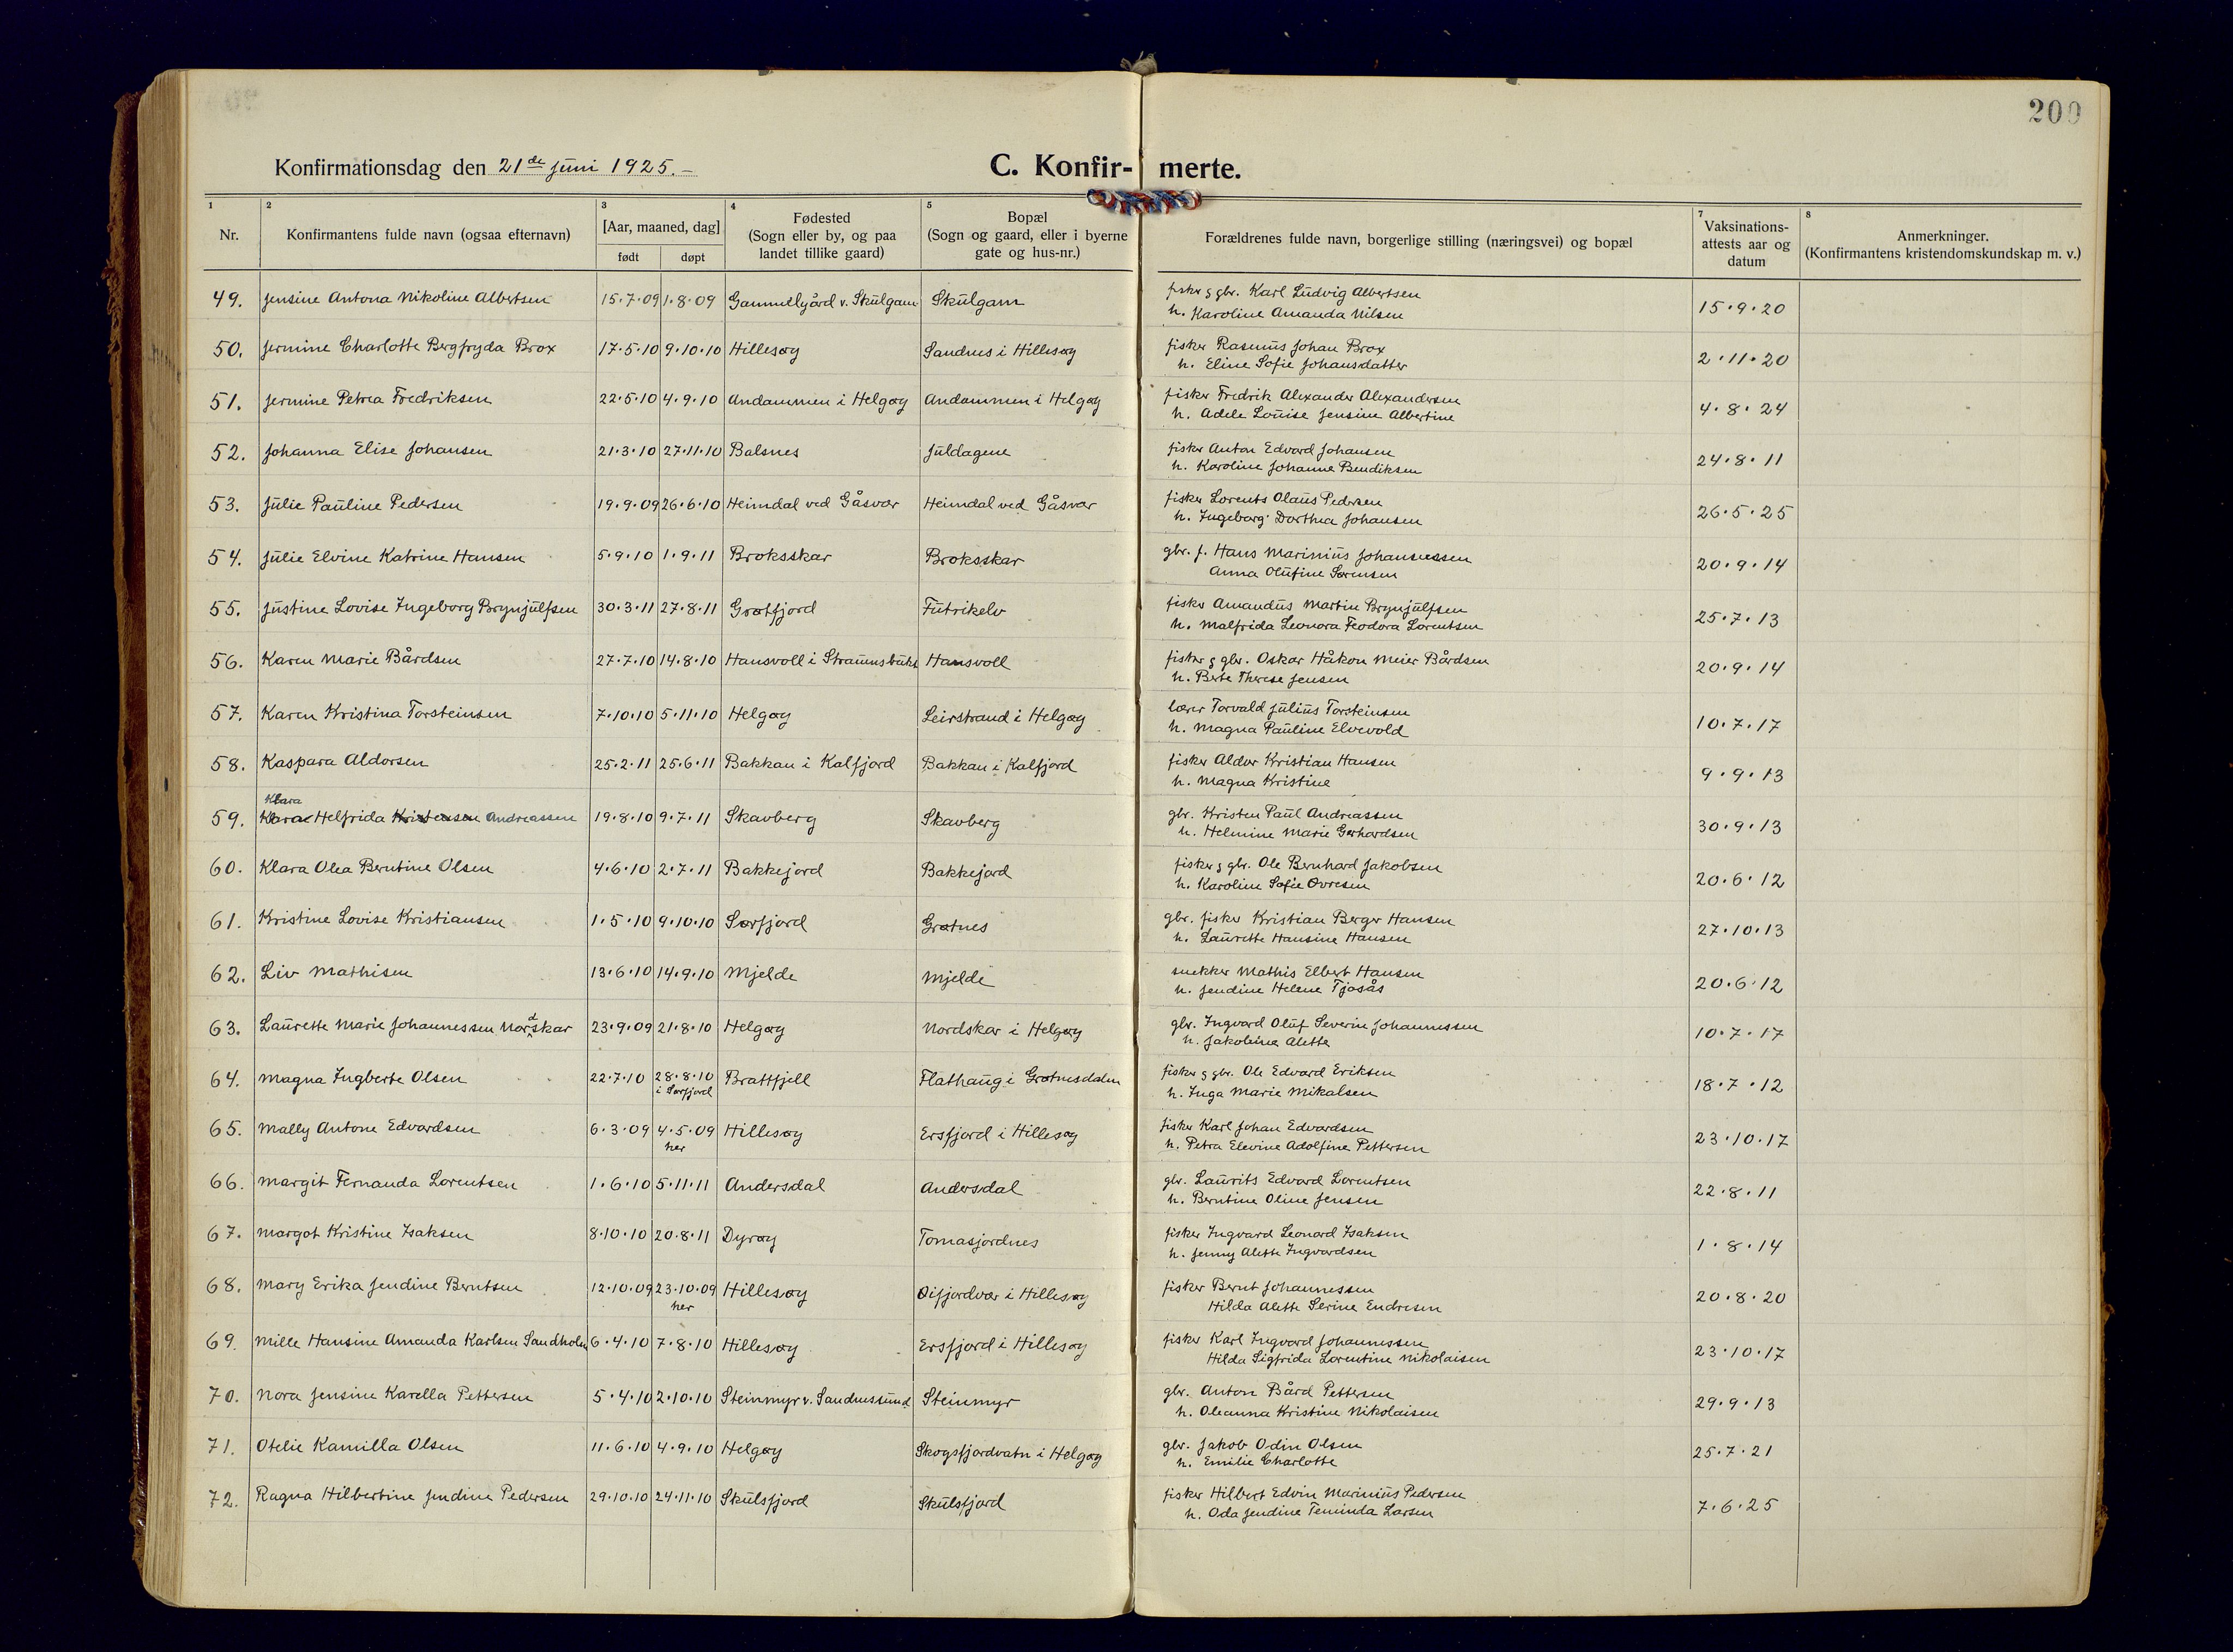 200
Konfirmationsdag den 21de juni 1925.-
C. Konfir- merte.
1 2 3 4 5 7 8
Nr. Konfirmantens fulde navn (ogsaa efternavn) [Aar, maaned, dag] født døpt Fødested (Sogn eller by, og paa landet tillike gaard) Bopæl (Sogn og gaard, eller i byerne gate og hus-nr.) Forældrenes fulde navn, borgerlige stilling (næringsvei) og bopæl Vaksinations-attests aar og datum Anmerkninger. (Konfirmantens kristendomskundskap m. v.)
49. Jensine Antona Nikoline Albertsen 15.7.09 1.8.09 Gammelgård v. Skulgam Skulgam fisker g gbr. Karl Ludvig Albertsen 15.9.20
h. Karoline Amanda Nilsen
50. Jermine Charlotte Bergfryda Brox 17.5.10 9.10.10 Hillesøy Sandnes i Hillesøy fisker Rasmus Johan Brox 2.11.20
h. Eline Sofie Johansdatter
51. Jermine Petrea Fredriksen 22.5.10 4.9.10 Andammen i Helgøy Andammen i Helgøy fisker Fredrik Alexander Alexandersen 4.8.24
h. Adele Louise Jensine Albertine
52. Johanna Elise Johansen 21.3.10 27.11.10 Balsnes Juldagene fisker Anton Edvard Johansen 24.8.11
h. Karoline Johanne Bendiksen
53. Julie Pauline Pedersen 19.9.09 26.6.10 Heimdal ved Gåsvær Heimdal ved Gåsvær fisker Lorents Olaus Pedersen 26.5.25
h. Ingeborg Dorthea Johansen
54. Julie Elvine Katrine Hansen 5.9.10 1.9.11 Broksskar Broksskar gbr. f. Hans Marinius Johannessen 20.9.14
Anna Olufine Sørensen
55. Justine Lovise Ingeborg Brynjulfsen 30.3.11 27.8.11 Grøtfjord Futrikelv fisker Amandus Martin Brynjulfsen 25.7.13
h. Malfrida Leonora Feodora Lorentsen
56. Karen Marie Bårdsen 27.7.10 14.8.10 Hansvoll i Straumsbukt Hansvoll fisker g gbr. Oskar Håkon Meier Bårdsen 20.9.14
h. Berte Therese Jensen
57. Karen Kristina Torsteinsen 7.10.10 5.11.10 Helgøy Leirstrand i Helgøy lærer Torvald Julius Torsteinsen 10.7.17
h. Magna Pauline Elvevold
58. Kaspara Aldorsen 25.2.11 25.6.11 Bakkan i Kalfjord Bakkan i Kalfjord fisker Aldor Kristian Hansen 9.9.13
h. Magna Kristine
Klara
59. Klara Helfrida Kristensen Andreassen 19.8.10 9.7.11 Skavberg Skavberg gbr. Kristen Paul Andreassen 30.9.13
h. Helmine Marie Gerhardsen
60. Klara Olea Berntine Olsen 4.6.10 2.7.11 Bakkejord Bakkejord fisker g gbr. Ole Bernhard Jakobsen 20.6.12
h. Karoline Sofie Ovresen
61. Kristine Lovise Kristiansen 1.5.10 9.10.10 Sørfjord Grøtnes gbr. fisker Kristian Berger Hansen 27.10.13
h. Laurette Hansine Hansen
62. Liv Mathisen 13.6.10 14.9.10 Mjelde Mjelde snekker Mathis Elbert Hansen 20.6.12
h. Jendine Helene Tjosås
63. Laurette Marie Johannessen Nordskar 23.9.09 21.8.10 Helgøy Nordskar i Helgøy gbr. Ingvard Oluf Severin Johannessen 10.7.17
h. Jakobine Alette
64. Magna Ingberte Olsen 22.7.10 28.8.10 i Sørfjord Brattfjell Flathaug i Grøtnesdalen fisker g gbr. Ole Edvard Eriksen 18.7.12
h. Inga Marie Mikalsen
65. Mally Antone Edvardsen 6.3.09 4.5.09 her Hillesøy Ersfjord i Hillesøy fisker Karl Johan Edvardsen 23.10.17
h. Petra Elevine Adolfine Pettersen
66. Margit Fernanda Lorentsen 1.6.10 5.11.11 Andersdal Andersdal gbr. Laurits Edvard Lorentsen 22.8.11
h. Berntine Oline Jensen
67. Margot Kristine Isaksen 8.10.10 20.8.11 Dyrøy Tomasjordnes fisker Ingvard Leonard Isaksen 1.8.14
h. Jenny Alette Ingvardsen
68. Mary Erika Jendine Berntsen 12.10.09 23.10.09 her Hillesøy Oifjordvær i Hillesøy fisker Bernt Johannessen 20.8.20
Hilda Alette Serine Endresen
69. Mille Hansine Amanda Karlsen Sandholm 6.4.10 7.8.10 Hillesøy Ersfjord i Hillesøy fisker Karl Ingvard Johannessen 23.10.17
Hilda Sigfrida Lorentine Nikolaisen
70. Nora Jensine Karella Pettersen 5.4.10 2.10.10 Steinmyr v. Sandnessund Steinmyr gbr. Anton Bård Pettersen 29.9.13
h. Oleanna Kristine Nikolaisen
71. Otelie Kamilla Olsen 11.6.10 4.9.10 Helgøy Skogsfjordvatn i Helgøy gbr. Jakob Odin Olsen 25.7.21
h. Emilie Charlotte
72. Ragna Hilbertine Jendine Pedersen 29.10.10 24.11.10 Skulsfjord Skulsfjord fisker Hilbert Edvin Marinius Pedersen 7.6.25
h. Oda Jendine Teminda Larsen